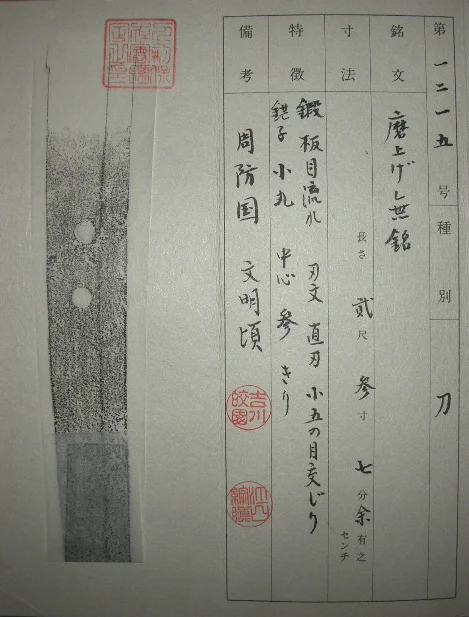 第一二一五号 種別 刀
銘文 磨上げ無銘
寸法 長さ 貮尺 参寸 七分余有之
センチ
特徴 鍛 板目流れ 刃文 直刃 小五の目交じり
鋩子 小丸 中心 参 きり
備考 周防国 文明頃
吉川皎園